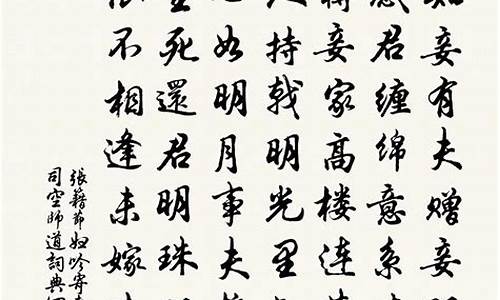 知妾有夫贈妾
感君纏綿意系
妾家高樓連
持戟明光里
如明月事夫
死還君明珠
不相逢未嫁
張籍節婦吟寄
司空師道詞典